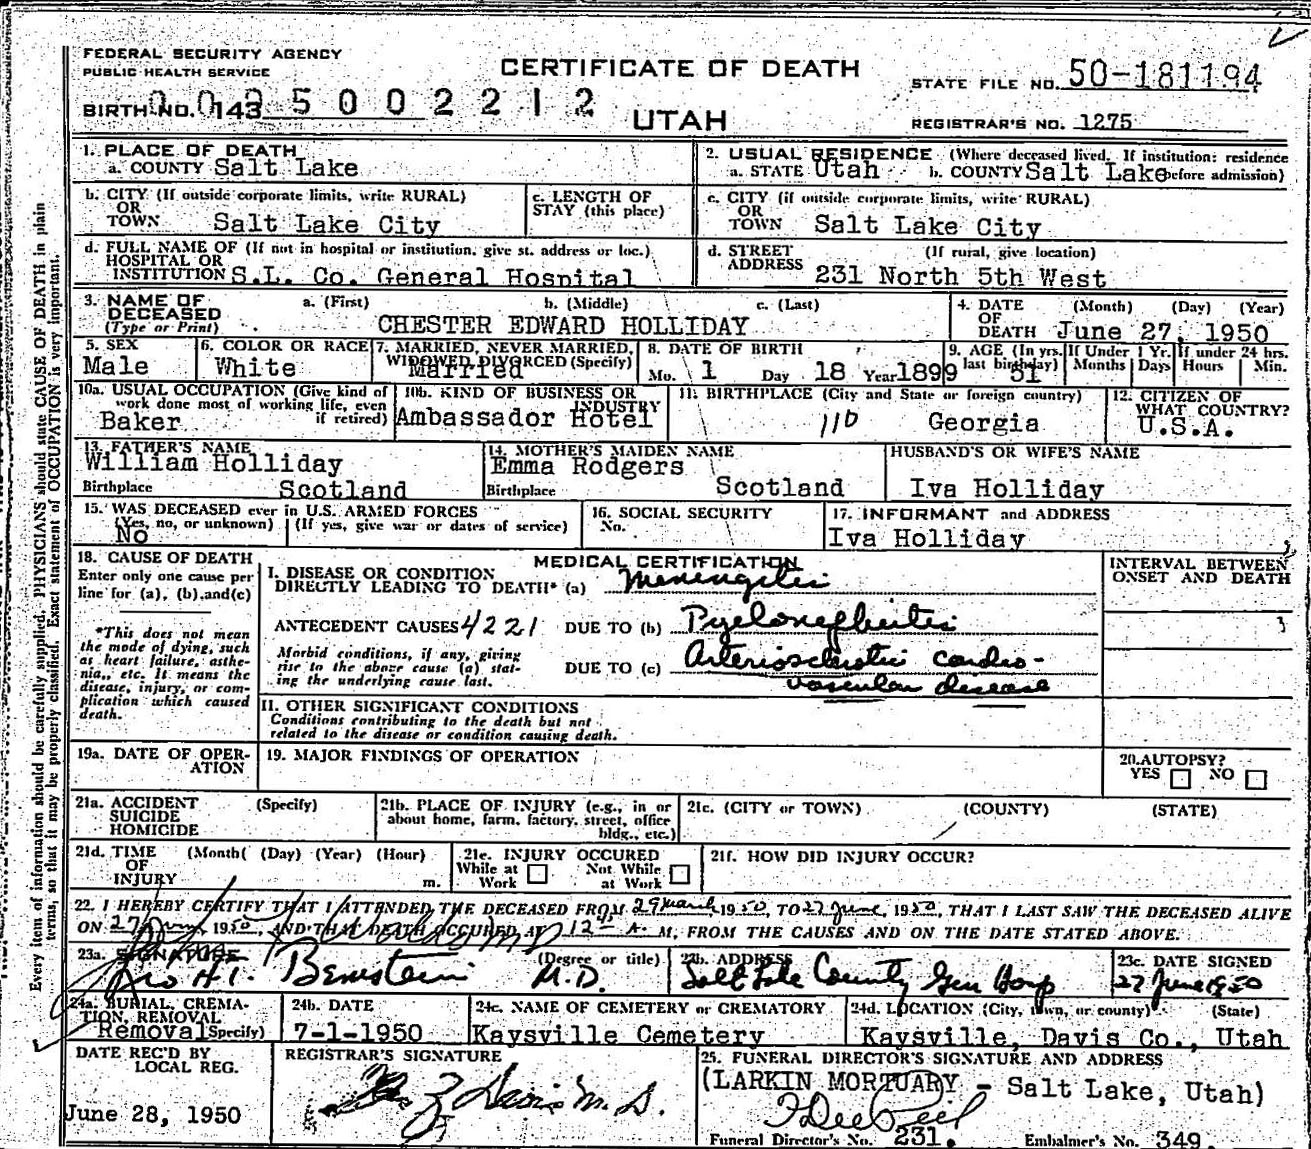 FEDERAL SECURITY AGENCY
PUBLIC HEALTH SERVICE
CERTIFICATE OF DEATH
STATE FILE NO. 50-181194
BIRTH NO. 143 0095002212
UTAH
REGISTRAR'S NO. 1275
Every item of information should be carefully supplied. PHYSICIANS should state CAUSE OF DEATH in plain
terms, so that it may be properly classified. Exact statement of OCCUPATION is very important.
1. PLACE OF DEATH
a. COUNTY Salt Lake
2. USUAL RESIDENCE (Where deceased lived. If institution: residence
a. STATE Utah b. COUNTY Salt Lake before admission)
b. CITY (If outside corporate limits, write RURAL)
OR
TOWN Salt Lake City
c. LENGTH OF
STAY (this place)
c. CITY (if outside corporate limits, write RURAL)
OR
TOWN Salt Lake City
d. FULL NAME OF (If not in hospital or institution, give st. address or loc.)
HOSPITAL OR
INSTITUTION S.L. Co. General Hospital
d. STREET (If rural, give location)
ADDRESS 231 North 5th West
3. NAME OF a. (First) b. (Middle) c. (Last)
DECEASED
(Type or Print) CHESTER EDWARD HOLLIDAY
4. DATE (Month) (Day) (Year)
OF
DEATH June 27, 1950
5. SEX
Male
6. COLOR OR RACE
White
7. MARRIED, NEVER MARRIED,
WIDOWED DIVORCED (Specify)
Married
8. DATE OF BIRTH
Mo. 1 Day 18 Year 1899
9. AGE (In yrs.
last birthday) 51
If Under 1 Yr.
Months Days
If under 24 hrs.
Hours Min.
10a. USUAL OCCUPATION (Give kind of
work done most of working life, even
if retired)
Baker
10b. KIND OF BUSINESS OR
INDUSTRY
Ambassador Hotel
11. BIRTHPLACE (City and State or foreign country)
110 Georgia
12. CITIZEN OF
WHAT COUNTRY?
U.S.A.
13. FATHER'S NAME
William Holliday
Birthplace Scotland
14. MOTHER'S MAIDEN NAME
Emma Rodgers
Birthplace Scotland
HUSBAND'S OR WIFE'S NAME
Iva Holliday
15. WAS DECEASED ever in U.S. ARMED FORCES
(Yes, no, or unknown) (If yes, give war or dates of service)
No
16. SOCIAL SECURITY
No.
17. INFORMANT and ADDRESS
Iva Holliday
18. CAUSE OF DEATH
Enter only one cause per
line for (a), (b), and (c)
*This does not mean
the mode of dying, such
as heart failure, asthe-
nia, etc. It means the
disease, injury, or com-
plication which caused
death.
MEDICAL CERTIFICATION
I. DISEASE OR CONDITION
DIRECTLY LEADING TO DEATH* (a) Meningitis
ANTECEDENT CAUSES 4221 DUE TO (b) Pyelonephritis
Morbid conditions, if any, giving
rise to the above cause (a) stat-
ing the underlying cause last.
DUE TO (c) Arteriosclerotic cardio-
vascular disease
INTERVAL BETWEEN
ONSET AND DEATH
II. OTHER SIGNIFICANT CONDITIONS
Conditions contributing to the death but not
related to the disease or condition causing death.
19a. DATE OF OPER-
ATION
19. MAJOR FINDINGS OF OPERATION
20. AUTOPSY?
YES NO
21a. ACCIDENT (Specify)
SUICIDE
HOMICIDE
21b. PLACE OF INJURY (e.g., in or
about home, farm, factory, street, office
bldg., etc.)
21c. (CITY or TOWN) (COUNTY) (STATE)
21d. TIME (Month( (Day) (Year) (Hour)
OF
INJURY m.
21e. INJURY OCCURED
While at Work Not While at Work
21f. HOW DID INJURY OCCUR?
22. I HEREBY CERTIFY THAT I ATTENDED THE DECEASED FROM 29 March 1950, TO 27 June, 1950, THAT I LAST SAW THE DECEASED ALIVE
ON 27 June, 1950, AND THAT DEATH OCCURED AT 12 A M, FROM THE CAUSES AND ON THE DATE STATED ABOVE.
23a. SIGNATURE (Degree or title)
Leo H. Bernstein M.D.
23b. ADDRESS
Salt Lake County Gen Hosp
23c. DATE SIGNED
27 June 1950
24a. BURIAL, CREMA-
TION, REMOVAL
Removal Specify)
24b. DATE
7-1-1950
24c. NAME OF CEMETERY or CREMATORY
Kaysville Cemetery
24d. LOCATION (City, town, or county) (State)
Kaysville, Davis Co., Utah
DATE REC'D BY
LOCAL REG.
June 28, 1950
REGISTRAR'S SIGNATURE
Davis M.D.
25. FUNERAL DIRECTOR'S SIGNATURE AND ADDRESS
(LARKIN MORTUARY - Salt Lake, Utah)
Funeral Director's No. 231. Embalmer's No. 349.